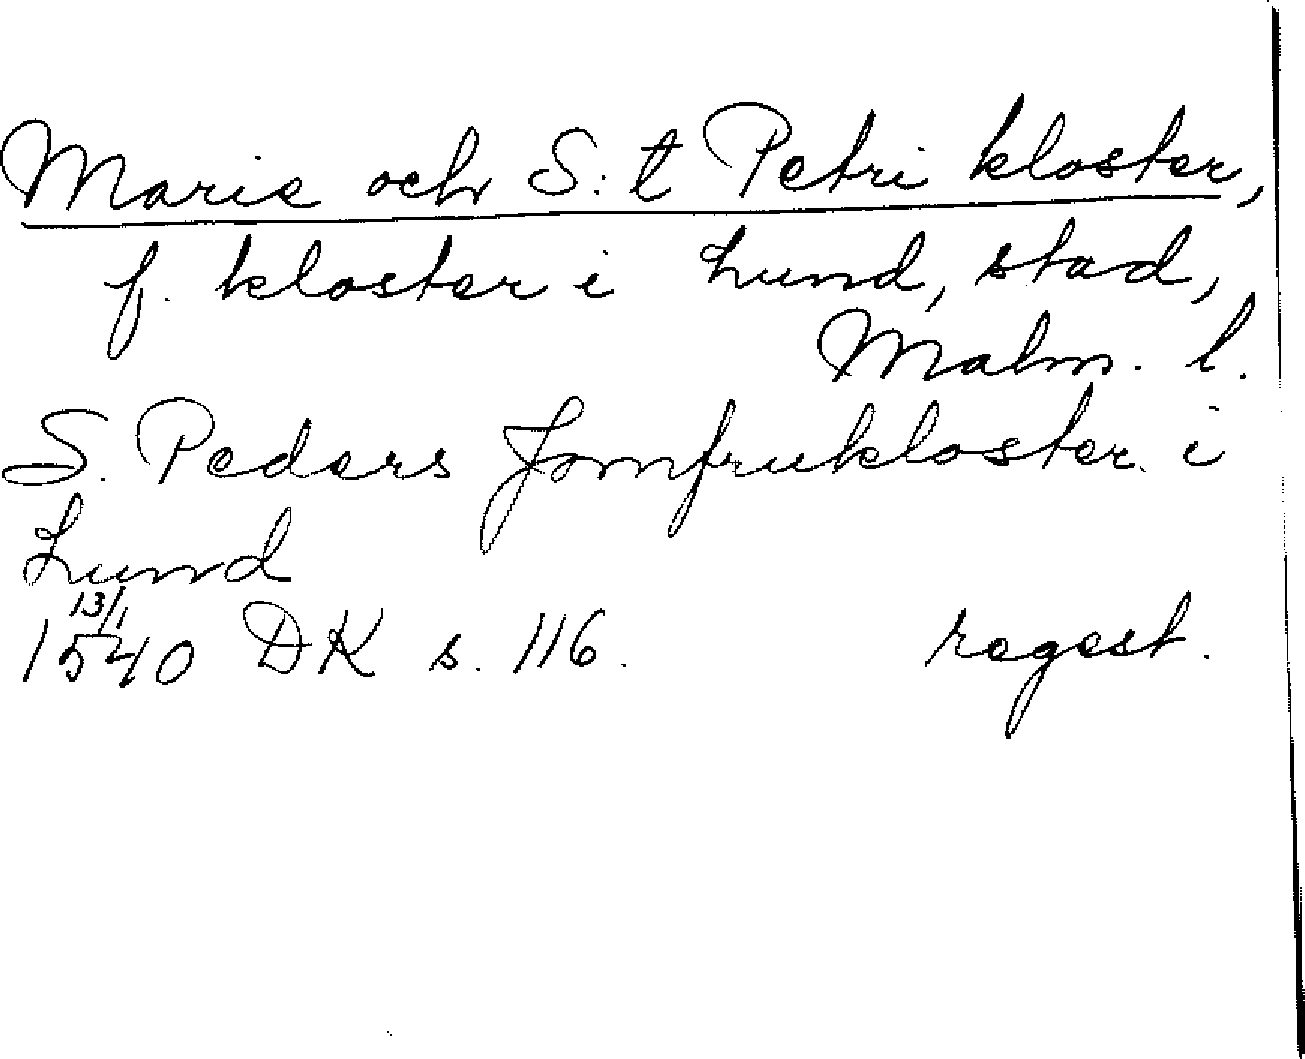 Marie och S:t Petri kloster,
f. kloster i Lund, stad,
Malm. l.
S. Peders Jomfrukloster i
Lund
13/1
1540 DK s. 116. regest.